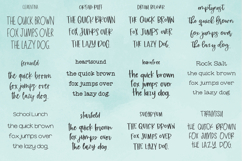 THE QUICK BROWN
FOX JUMPS OVER
THE LAZY DOG
THE QUICK BROWN
FOX JUMPS OVER
THE LAZY DOG
THE QUICK BROWN
FOX JUMPS OVER
THE LAZY DOG
the quick brown
fox jumps over
the lazy dog
the quick brown
fox jumps over
the lazy dog
heartsound
the quick brown
fox jumps over
the lazy dog
the quick brown
fox jumps over
the lazy dog
Rock Salt
the quick brown
fox jumps over
the lazy dog
School Lunch
the quick brown
fox jumps over
the lazy dog
the quick brown
fox jumps over
the lazy dog
THE QUICK BROWN
FOX JUMPS OVER
THE LAZY DOG
THE QUICK BROWN
FOX JUMPS OVER
THE LAZY DOG